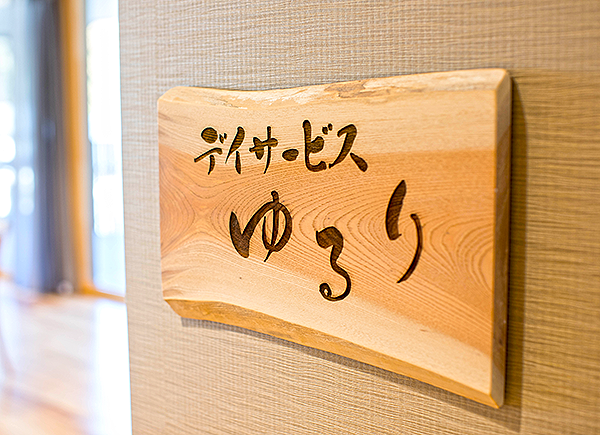 デイサービス
ゆるり